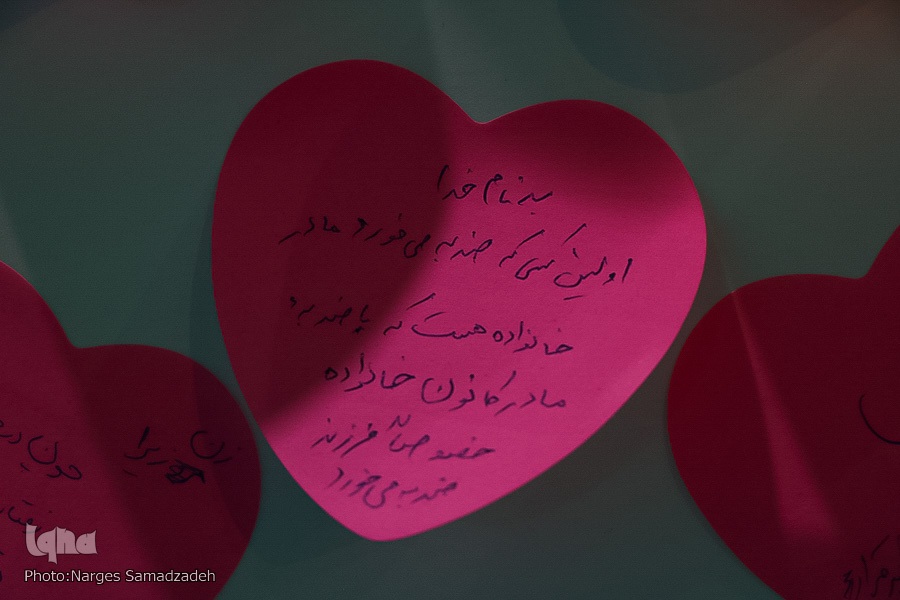 به نام خدا
اولین کسی که ضربه می‌خورد مادر
خانواده هست که با ضربهٔ
مادر کانون خانواده
خصوصاً فرزند
ضربه می‌خورد
زن
زیرا
چون
iqna
Photo:Narges Samadzadeh